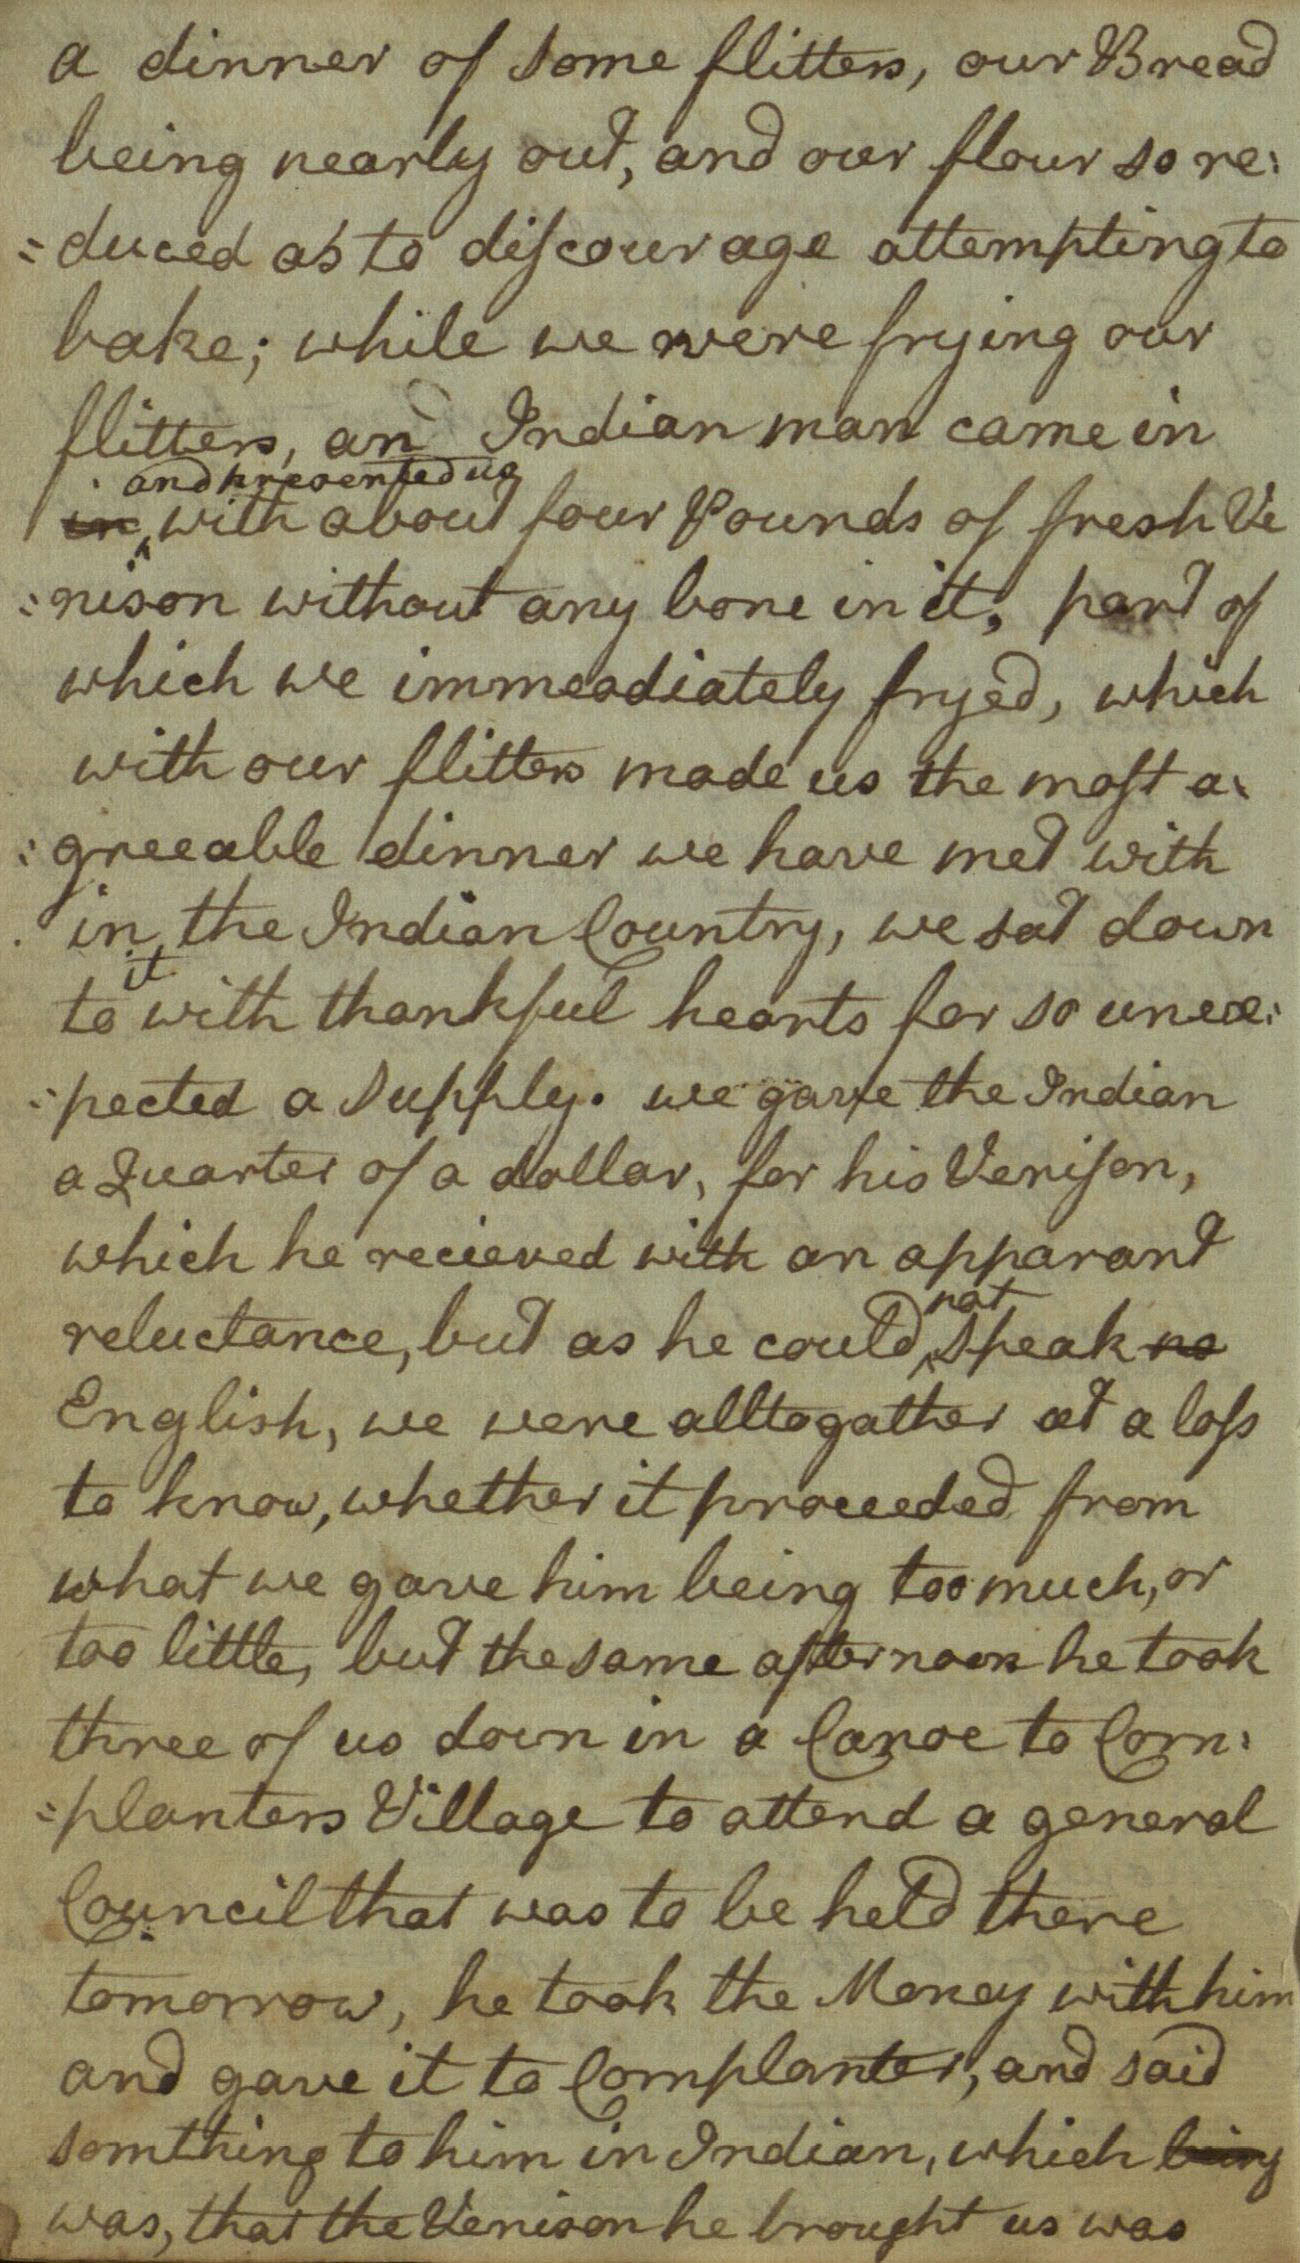 a dinner of some flitters, our Bread
being nearly out, and our flour so re:
=duced as to discourage attempting to
bake; while we were frying our
flitters, an Indian man came in
and presented us
in with about four Pounds of fresh Ve
:nison without any bone in it, part of
which we immeadiately fryed, which
with our flitters made us the most a:
:greeable dinner we have met with
in the Indian Country, we sat down
it
to with thankful hearts for so unex:
:pected a supply. we gave the Indian
a Quarter of a dollar, for his Venison,
which he recieved with an apparant
not
reluctance, but as he could speak no
English, we were alltogather at a loss
to know, whether it proceeded from
what we gave him being too much, or
too little, but the same afternoon he took
three of us down in a Canoe to Corn:
=planters Village to attend a general
Council that was to be held there
tomorrow, he took the Money with him
and gave it to Cornplanter, and said
somthing to him in Indian, which being
was, that the Venison he brought us was